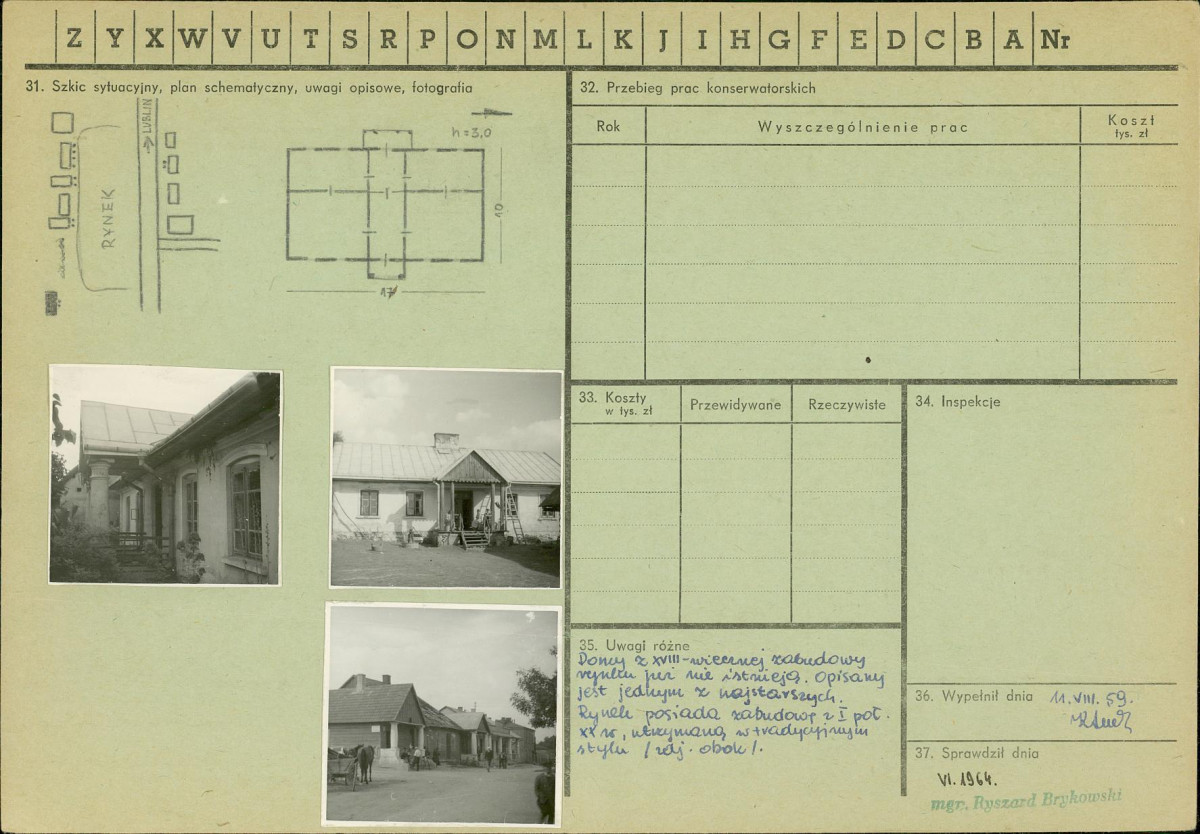 Z Y X W V U T S R P O N M L K J I H G F E D C B A Nr
31. Szkic sytuacyjny, plan schematyczny, uwagi opisowe, fotografia
LUBLIN
RYNEK
h=3,0
10
17
32. Przebieg prac konserwatorskich
Rok Wyszczególnienie prac Koszt
tys. zł
33. Koszty
w tys. zł
Przewidywane Rzeczywiste
34. Inspekcje
35. Uwagi różne
Domy z XVIII-wiecznej zabudowy
rynku już nie istnieją. Opisany
jest jednym z najstarszych.
Rynek posiada zabudowę z I poł.
XX w, utrzymaną w tradycyjnym
stylu /zdj. obok/.
36. Wypełnił dnia 11.VIII.59.
37. Sprawdził dnia
VI.1964.
mgr. Ryszard Brykowski